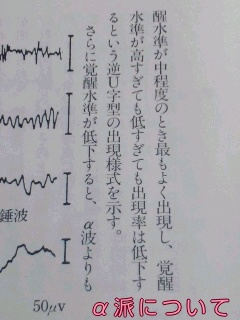 醒水準が中程度のとき最もよく出現し、覚醒
水準が高すぎても低すぎても出現率は低下す
るという逆U字型の出現様式を示す。
さらに覚醒水準が低下すると、α波よりも
錘波
50μv
α派について